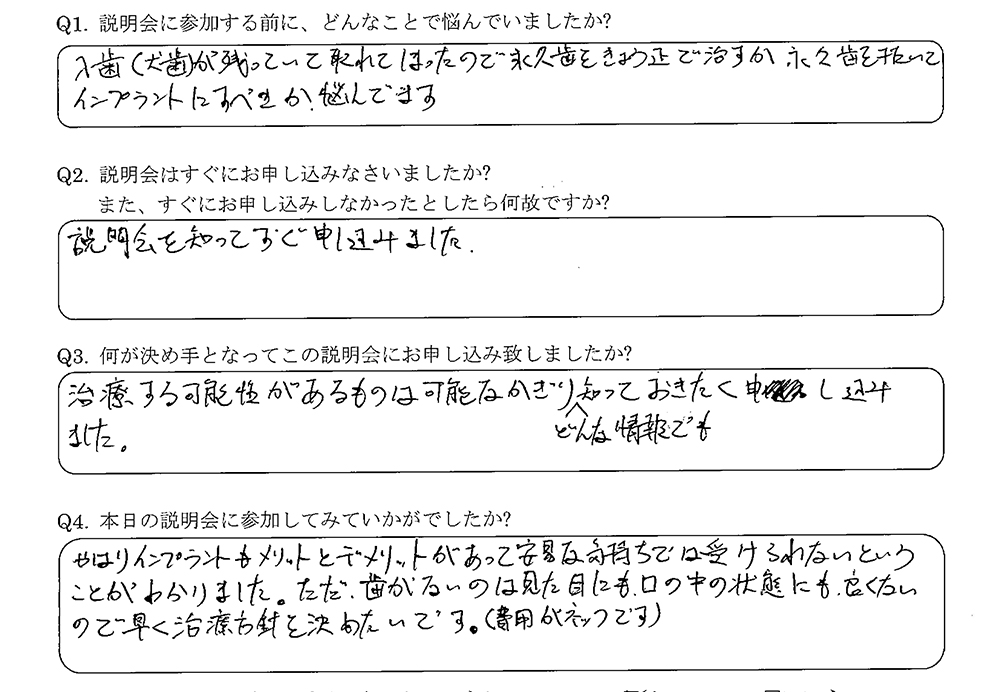 Q1. 説明会に参加する前に、どんなことで悩んでいましたか?
入歯(犬歯)が残っていて取れてしまったので永久歯をきょう正で治すか 永久歯を抜いて
インプラントにすべきか、悩んでます
Q2. 説明会はすぐにお申し込みなさいましたか?
また、すぐにお申し込みしなかったとしたら何故ですか?
説明会を知ってすぐ申し込みました.
Q3. 何が決め手となってこの説明会にお申し込み致しましたか?
治療する可能性があるものは可能なかぎり知っておきたく申し込み
どんな情報でも
ました。
Q4. 本日の説明会に参加してみていかがでしたか?
やはりインプラントもメリットとデメリットがあって安易な気持ちでは受けられないという
ことがわかりました。ただ、歯がないのは見た目にも、口の中の状態にも、良くない
ので早く治療方針を決めたいです。(費用がネックです)